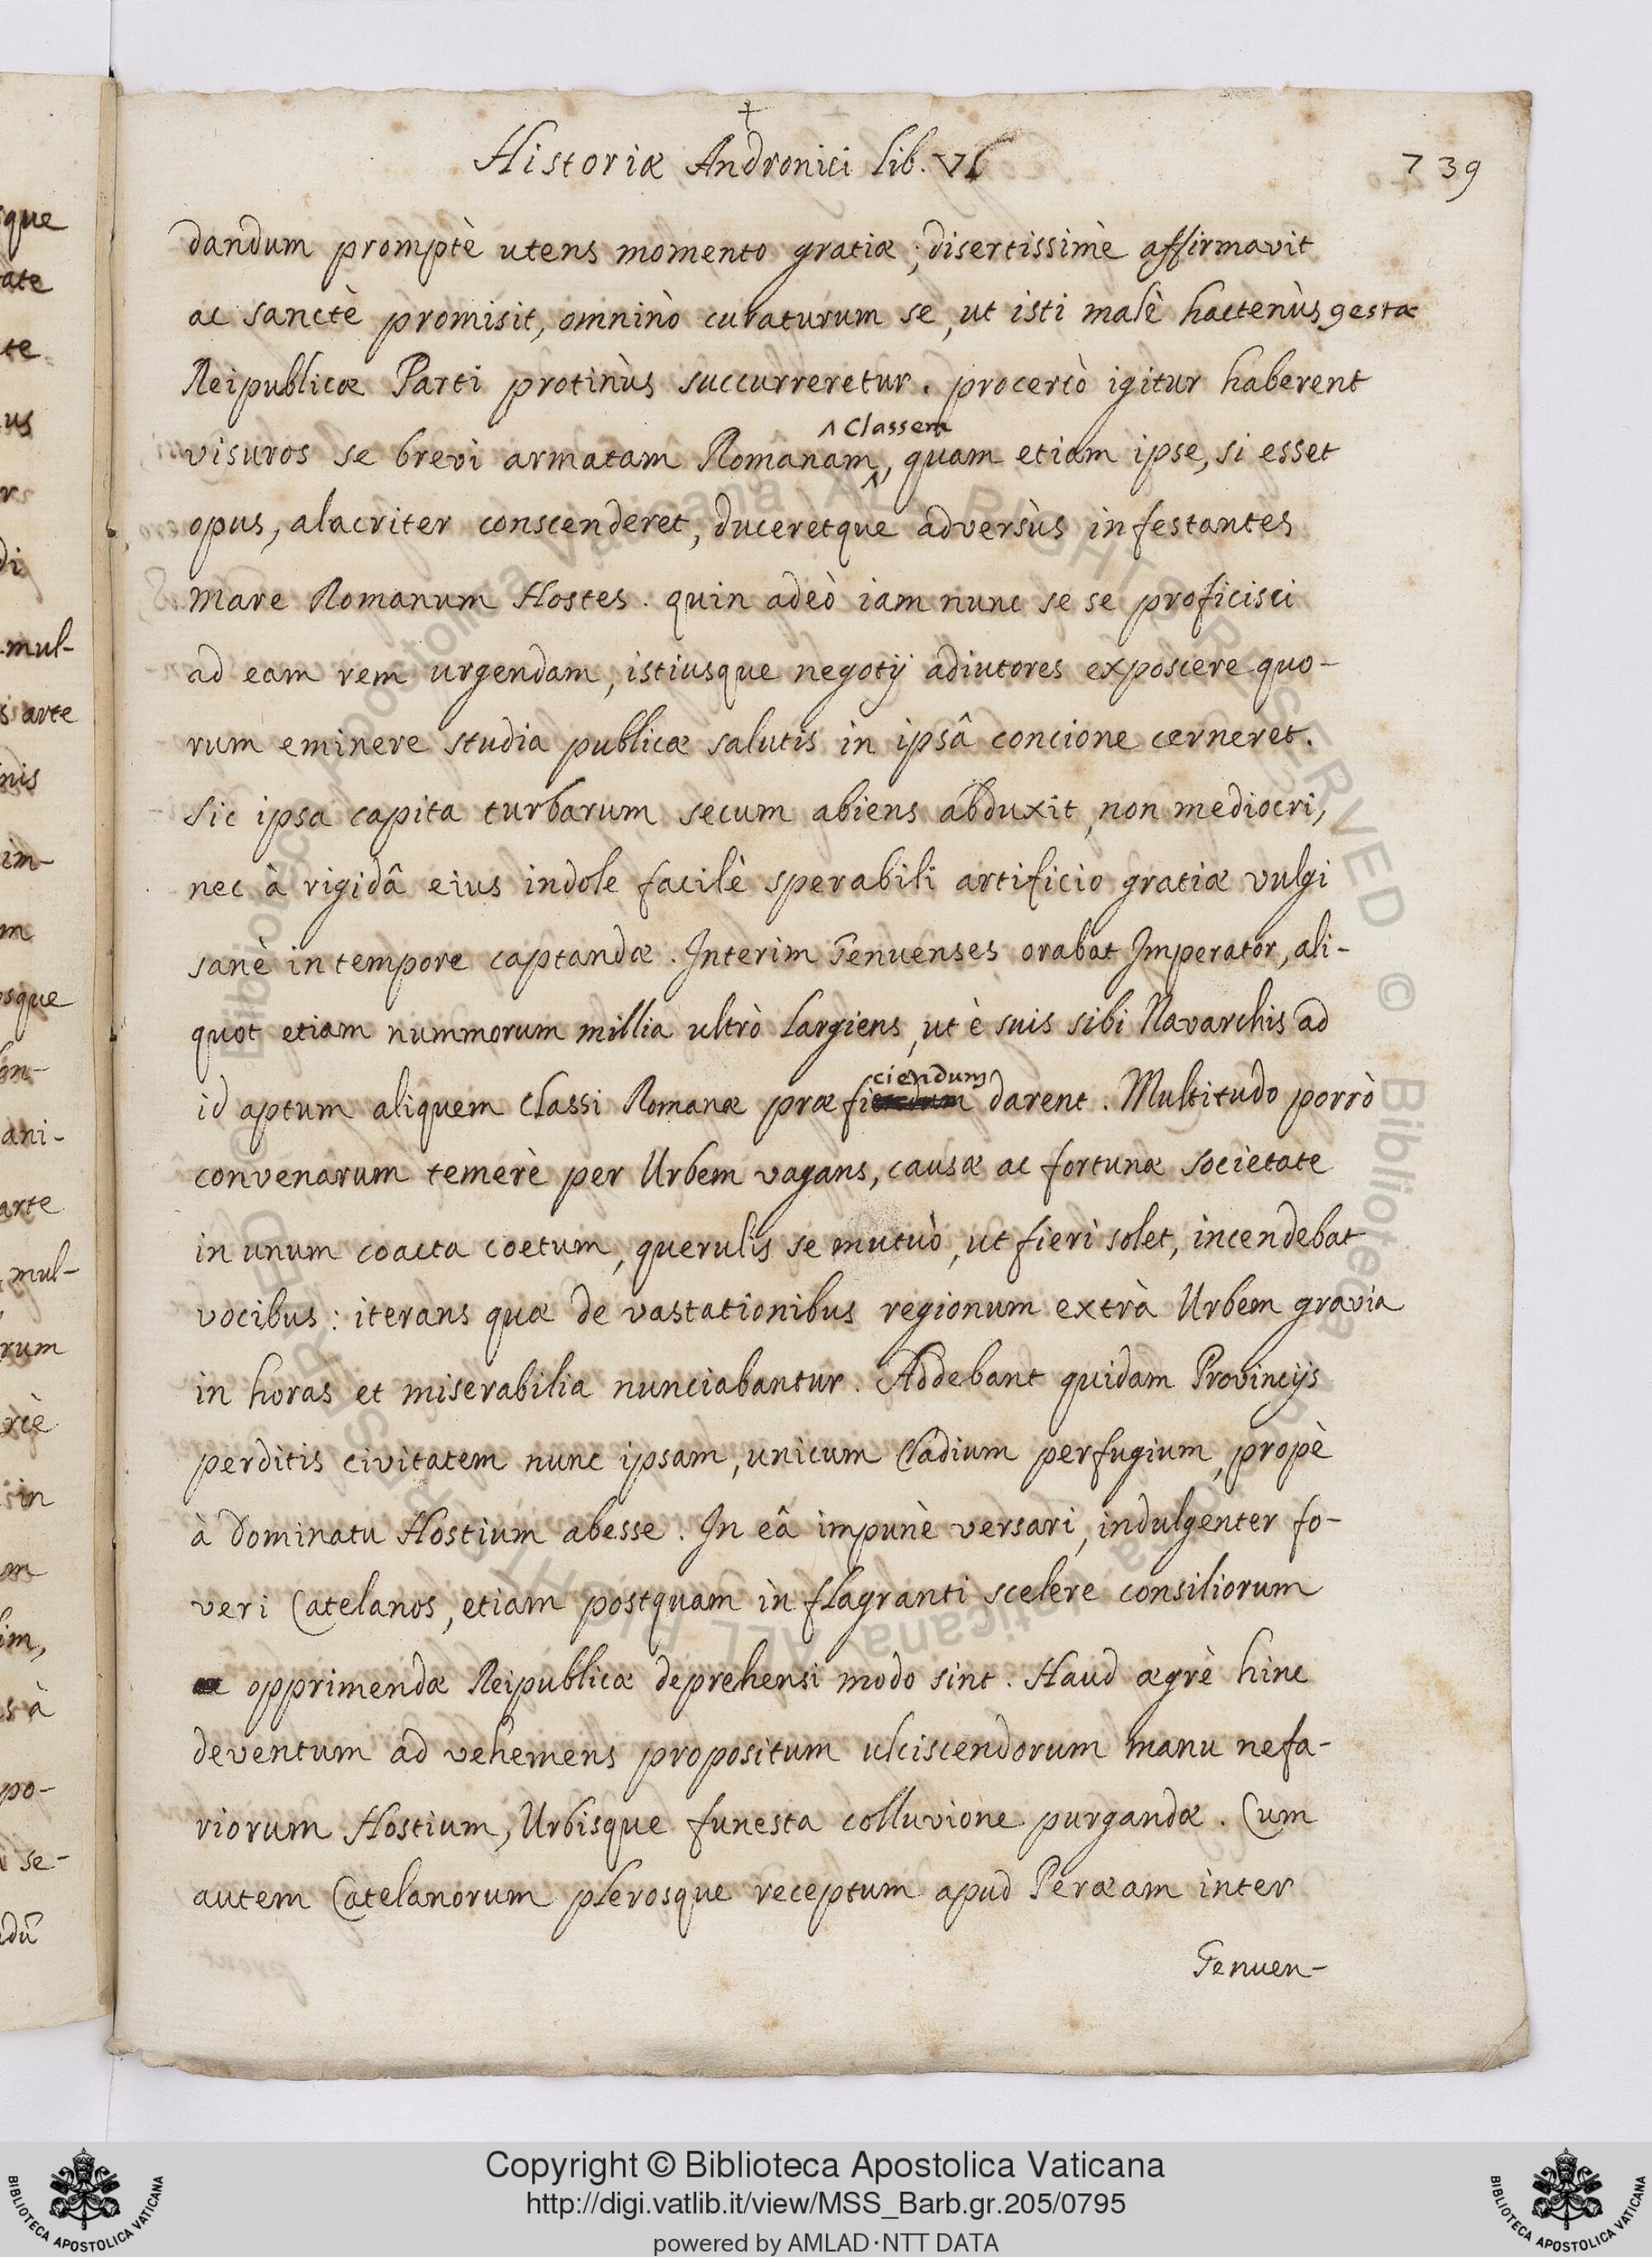 Historiæ Andronici lib. VI
739
dandum promptè utens momento gratiæ; disertissimè affirmavit
ac sanctè promisit, omninò curaturum se, ut isti malè hactenùs gestæ
Reipublicæ Parti protinùs succurreretur. procertò igitur haberent
^ Classem
visuros se brevi armatam Romanam^, quam etiam ipse, si esset
opus, alacriter conscenderet, duceretque adversùs infestantes
mare Romanum Hostes. quin adeò iam nunc se se proficisci
ad eam rem urgendam, istiusque negotij adiutores exposcere quo-
rum eminere studia publicæ salutis in ipsâ concione cerneret.
Sic ipsa capita turbarum secum abiens abduxit, non mediocri,
nec à rigidâ eius indole facilè sperabili artificio gratiæ vulgi
sanè in tempore captandæ. Interim Genuenses orabat Imperator, ali-
quot etiam nummorum millia ultrò largiens, ut è suis sibi Navarchis ad
ciendum
id aptum aliquem Classi Romanæ præfi darent. Multitudo porrò
convenarum temerè per Urbem vagans, causæ ac fortunæ societate
in unum coacta coetum, querulis se mutuò, ut fieri solet, incendebat
vocibus: iterans quæ de vastationibus regionum extrà Urbem gravia
in horas et miserabilia nunciabantur. Addebant quidam Provincijs
perditis civitatem nunc ipsam, unicum Cladium perfugium, propè
à Dominatu Hostium abesse. In eâ impunè versari, indulgenter fo-
veri Catelanos, etiam postquam in flagranti scelere consiliorum
opprimendæ Reipublicæ deprehensi modo sint. Haud ægrè hinc
deventum ad vehemens propositum ulciscendorum manu nefa-
riorum Hostium, Urbisque funesta colluvione purgandæ. Cum
autem Catelanorum plerosque receptum apud Peræam inter
Genuen-
que
ate
te
us
di
mul-
s arte
nis
im-
m
sque
ani-
arte
mul-
rum
sin
m
s à
po-
se-
Copyright © Biblioteca Apostolica Vaticana
http://digi.vatlib.it/view/MSS_Barb.gr.205/0795
powered by AMLAD·NTT DATA
BIBLIOTECA APOSTOLICA VATICANA
BIBLIOTECA APOSTOLICA VATICANA
© Biblioteca Apostolica Vaticana ALL RIGHTS RESERVED © Biblioteca Apostolica Vaticana ALL RIGHTS RESERVED